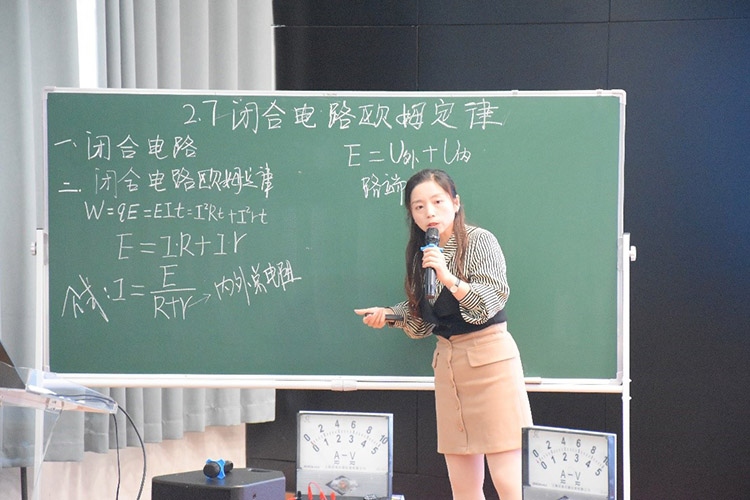 2.7 闭合电路欧姆定律
一. 闭合电路
二. 闭合电路欧姆定律
W=qE=EIt=I²Rt+I²rt
E=I·R+Ir
公式: I=E/(R+r)→内外总电阻
E=U外+U内
路端
0 2 4 6 8 10
0 1 2 3 4 5
A-V
0 2 4 6 8 10
0 1 2 3 4 5
A-V